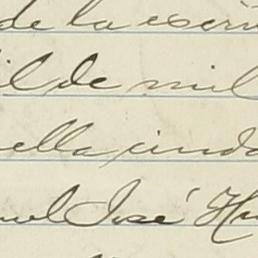 de la escri
il de mil
ella ciuda
uel José Hu